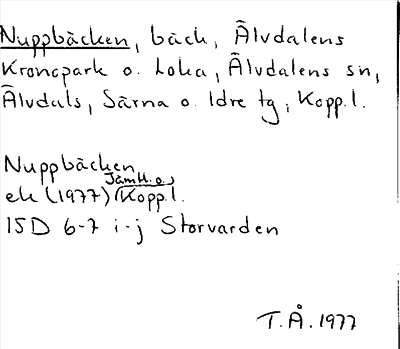 Nuppbäcken, bäck, Älvdalens
Kronopark o. Loka, Älvdalens sn,
Älvdals, Särna o. Idre tg, Kopp.l.
Nuppbäcken
Jämtl. o.
ek (1977) Kopp.l.
15D 6-7 i-j Storvarden
T.Å. 1977